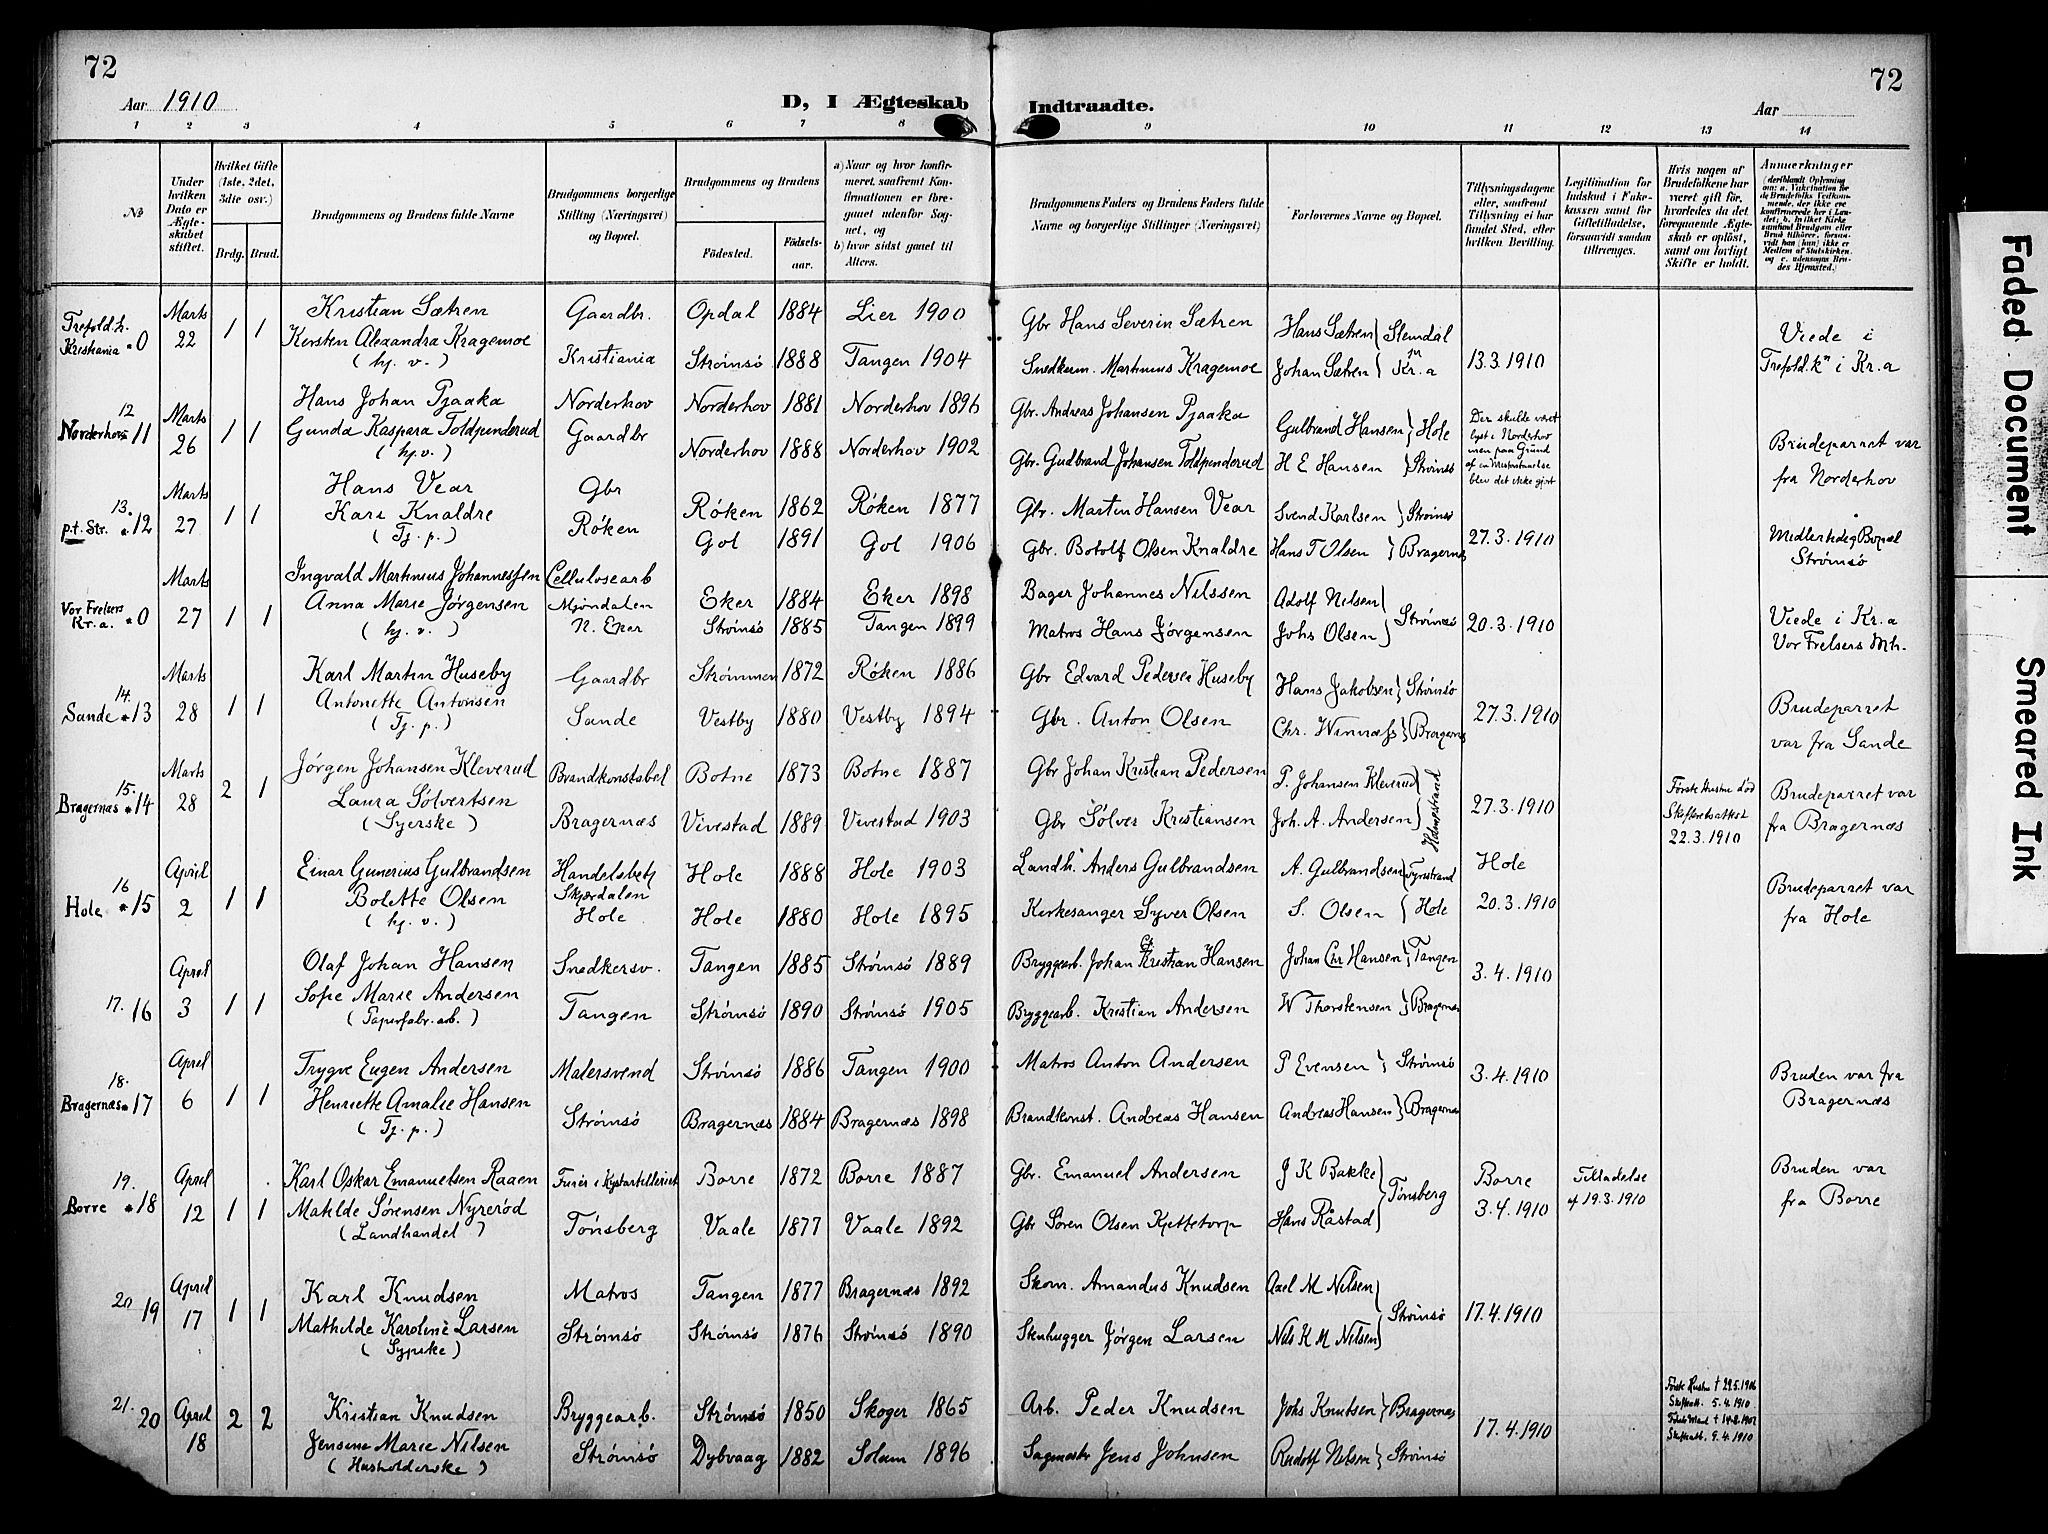 72
72
Aar 1910
D, I Ægteskab Indtraadte.
Aar
1 2 3 4 5 6 7 8 9 10 11 12 13 14
No
Under hvilken Dato er Ægteskabet stiftet.
Hvilket Gifte (1ste, 2det, 3die osv.)
Brdg. Brud.
Brudgommens og Brudens fulde Navne
Brudgommens borgerlige Stilling (Næringsvei) og Bopæl.
Brudgommens og Brudens
Fødested.
Fødselsaar.
a) Naar og hvor konfirmeret, saafremt Konfirmationen er foregaaet udenfor Sognet, og
b) hvor sidst gaaet til Alters.
Brudgommens Faders og Brudens Faders fulde Navne og borgerlige Stillinger (Næringsvei)
Forlovernes Navne og Bopæl.
Tillysningsdagene eller, saafremt Tillysning ei har fundet Sted, efter hvilken Bevilling.
Legitimation for Indskud i Enkekassen samt for Giftetilladelse, forsaavidt saadan tiltrænges.
Hvis nogen af Brudefolkene har været gift før, hvorledes da det foregaaende Ægteskab er opløst, samt om lovligt Skifte er holdt.
Anmerkninger
(deriblandt Oplysning om: a. Vakcination for de Brudefolks Vedkommende, der ikke ere konfirmerede her i Landet; b. hvilket Kirkesamfund Brudgom eller Brud tilhører, forsaavidt han (hun) ikke er Medlem af Statskirken, og c. udensogns Brudes Hjemsted.)
Trefold.k. Kristiania * 0
Marts 22 1 1
Kristian Sætren Gaardbr. Opdal 1884 Lier 1900 Gbr Hans Severin Sætren Hans Sætren Slemdal
Kersten Alexandra Kragemoe Kristiania Strømsø 1888 Tangen 1904 Snedkerm. Martinius Kragemoe Johan Sætren Kr.a 13.3.1910
(hj. v.)
Viede i Trefold.kn i Kr.a
12 Norderhov * 11
Marts 26 1 1
Hans Johan Pjaaka Norderhov Norderhov 1881 Norderhov 1896 Gbr. Andreas Johansen Pjaaka Gulbrand Hansen Hole
Gunda Kaspara Toldpinderud Gaardbr Norderhov 1888 Norderhov 1902 Gbr. Gudbrand Johansen Toldpinderud H E Hansen Strømsø
(hj.v.)
Der skulde været lyst i Norderhov men paa Grund af en Misforstaaelse blev det ikke gjort
Brudeparret var fra Norderhov
13. p.t. Str. * 12
Marts 27 1 1
Hans Vear Gbr Røken 1862 Røken 1877 Gbr. Martin Hansen Vear Svend Karlsen Strømsø
Kari Knaldre Røken Gol 1891 Gol 1906 Gbr. Botolf Olsen Knaldre Hans T Olsen Bragernæs 27.3.1910
(Tj. p.)
Midlertidig Bopæl Strømsø
Vor Frelsers Kr.a. * 0
Marts 27 1 1
Ingvald Martinius Johannessen Cellulosearb Eker 1884 Eker 1898 Bager Johannes Nilssen Adolf Nilsen
Anna Marie Jørgensen Mjøndalen N. Eker Strømsø 1885 Tangen 1899 Matros Hans Jørgensen Johs Olsen Strømsø 20.3.1910
(hj. v.)
Viede i Kr.a Vor Frelsers Mh.
14. Sande * 13
Marts 28 1 1
Karl Martin Huseby Gaardbr Strømmen 1872 Røken 1886 Gbr Edvard Pedersen Huseby Hans Jakobsen Strømsø
Antonette Antonsen Sande Vestby 1880 Vestby 1894 Gbr. Anton Olsen Chr. Winnæss Bragernæs 27.3.1910
(Tj. p.)
Brudeparret var fra Sande
15. Bragernæs * 14
Marts 28 2 1
Jørgen Johansen Kleverud Brandkonstabel Botne 1873 Botne 1887 Gbr Johan Kristian Pedersen P. Johansen Kleverud
Laura Sølvertsen Bragernæs Vivestad 1889 Vivestad 1903 Gbr Sølver Kristiansen Joh. A. Andersen Holmestrand 27.3.1910
(Syerske)
Første Hustru død Skifteretsattest 22.3.1910
Brudeparret var fra Bragernæs
16 Hole * 15
April 2 1 1
Einar Gunerius Gulbrandsen Handelsbetj Hole 1888 Hole 1903 Landh. Anders Gulbrandsen A. Gulbrandsen Tyristrand Hole
Bolette Olsen Skjærdalen Hole Hole 1880 Hole 1895 Kirkesanger Syver Olsen S. Olsen Hole 20.3.1910
(hj. v.)
Brudeparret var fra Hole
17. 16
April 3 1 1
Olaf Johan Hansen Snedkersv. Tangen 1885 Strømsø 1889 Bryggearb. Johan Kristian Hansen Johan Chr Hansen Tangen
Sofie Marie Andersen Tangen Strømsø 1890 Strømsø 1905 Bryggearb. Kristian Andersen W Thorstensen Bragernæs 3.4.1910
(Tapetfabr. arb.)
18. Bragernæs * 17
April 6 1 1
Trygve Eugen Andersen Malersvend Strømsø 1886 Tangen 1900 Matros Anton Andersen P Evensen Strømsø
Henriette Amalie Hansen Strømsø Bragernæs 1884 Bragernæs 1898 Brandkonst. Andreas Hansen Andreas Hansen Bragernæs 3.4.1910
(Tj. p.)
Bruden var fra Bragernæs
19. Borre * 18
April 12 1 1
Karl Oskar Emanuelsen Raaen Furér i Kystartilleriet Borre 1872 Borre 1887 Gbr. Emanuel Andersen J K Bakke Borre
Matilde Sørensen Nyrerød Tønsberg Vaale 1877 Vaale 1892 Gbr Søren Olsen Kjettetorp Hans Råstad Tønsberg 3.4.1910
(Landhandel)
Tilladelse af 19.3.1910
Bruden var fra Borre
20 19
April 17 1 1
Karl Knudsen Matros Tangen 1877 Bragernæs 1892 Skom. Amandus Knudsen Axel M Nilsen
Mathilde Karoline Larsen Strømsø Strømsø 1876 Strømsø 1890 Stenhugger Jørgen Larsen Nils K M Nilsen Strømsø 17.4.1910
(Sypike)
21. 20
April 18 2 2
Kristian Knudsen Bryggearb. Strømsø 1850 Skoger 1865 Arb. Peder Knudsen Johs Knutsen Bragernæs
Jensine Marie Nilsen Strømsø Dybvaag 1882 Solum 1896 Sagmester Jens Johnsen Rudolf Nilsen Strømsø 17.4.1910
(Husholderske)
Første Hustru † 29.5.1906
Skifteatt. 5.4.1910
Første Mand † 14.8.1907
Skifteatt. 9.4.1910
Faded Document
Smeared Ink